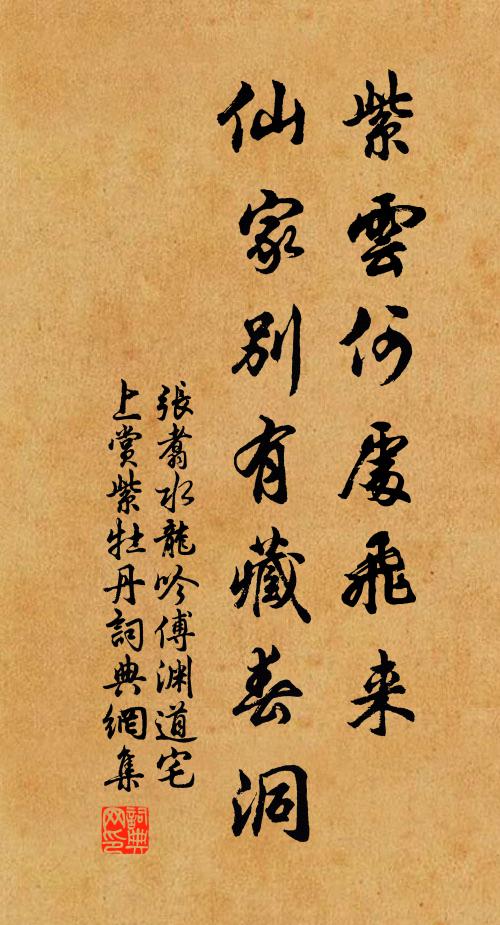 紫雲何處飛来
仙家別有藏春洞
張翥水龍吟傅淵道宅
上賞紫牡丹詞典網集
詞典
网印